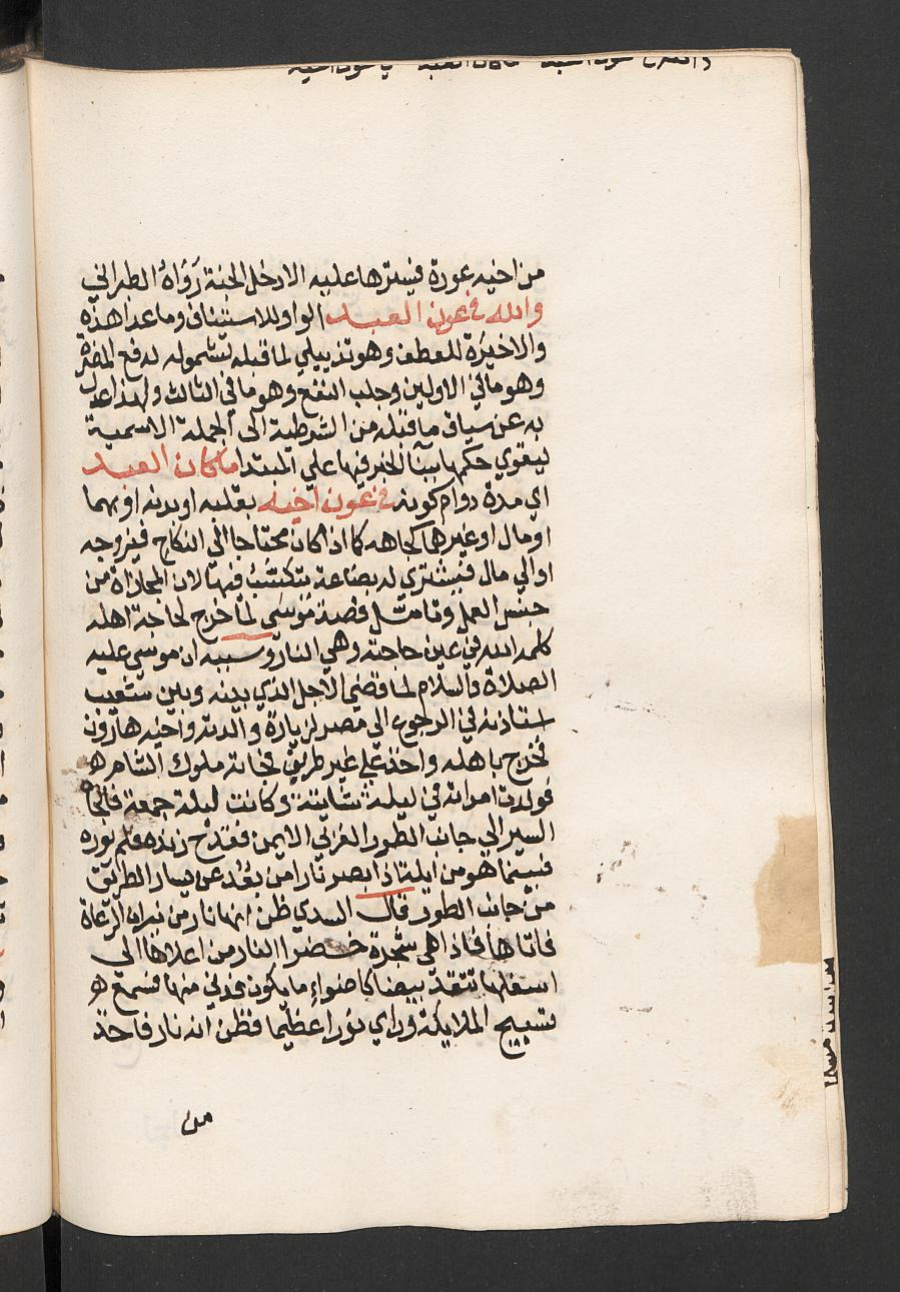 من اخيه عورة فيسترها عليه الا دخل الجنة رَوَاهُ الطبراني
والله في عون العبد الواو للاستئناف وما عدا هذه
والاخيرة للعطف وهو تذييلي لما قبله لشموله لدفع المضرة
وهو ما في الاولين وجلب النفع وهو ما في الثالث ولهذا عدل
به عن سياق ما قبله من الشرطية الى الجملة الاسمية
ليقوي حكمها ببنآ الخبر فيها علي المبتدا ما كان العبد
اي مدة دوام كونه في عون اخيه بقلبه او بدنه او بهما
او مال او غيرهما كجاهه كما اذا كان محتاجا الي النكاح فيزوجه
او الي مال فيشتري له بضاعة يتكسب فيها لان المجازاة من
جنس العمل وتامل قصة موسي لما خرج لحاجة اهله
كلمه الله في عين حاجته وهي النار وسببه ان موسي عليه
الصلاة والسلام لما قضي الاجل الذي بينه وبين شعيب
استاذنه في الرجوع الي مصر لزيارة والدته واخيه هارون
فخرج باهله واخذ علي غير طريق مخافة ملوك الشام
فولدت امراته في ليلة شاتية وكانت ليلة جمعة فالجأ
السير الي جانب الطور الغربي الايمن فقدح زنده فلم يوره
فبينما هو من ايلة اذ ابصر نارا من بعد عن يسار الطريق
من جانب الطور قال السدي ظن انها نار من نيران الرعاة
فاتاها فاذا هي شجرة خضرا النار من اعلاها الي
اسفلها تتقد بيضا كاضواء ما يكون فدني منها فسمع
تسبيح الملايكة وراي نورا عظيما فظن انه نار فاخذ
من